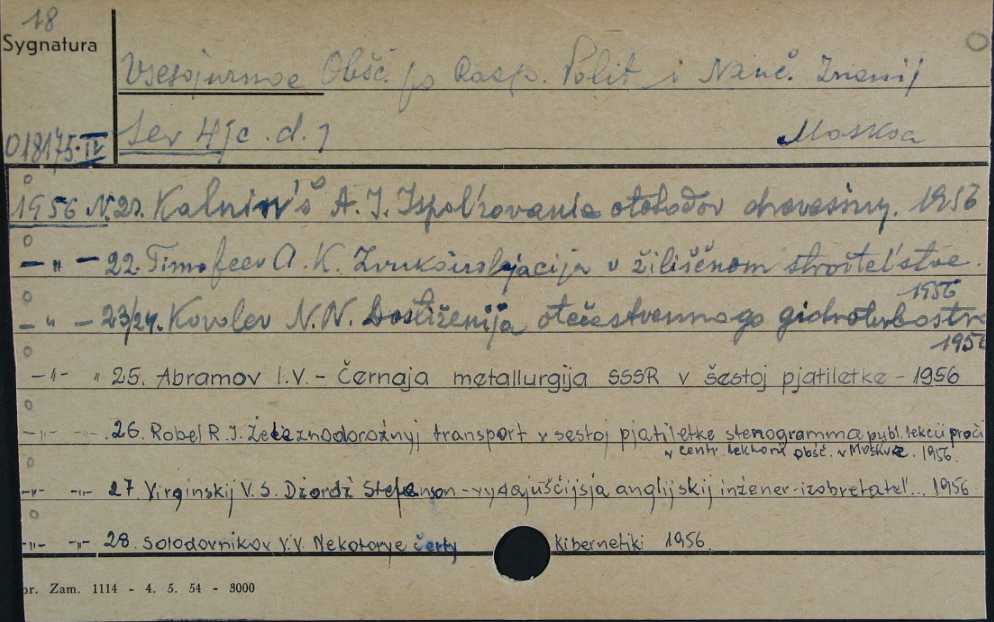 18
Sygnatura
Vsesojuznoe Obšč. po Rasp. Polit i Nauč. Znanij
Ser 4 Moskva
018175.IV
1956 N. 21. Kalnin'š A. I. Ispol'zovanie otchodov drevesiny. 1956
— " — 22. Timofeev A. K. Zvukoizoljacija v žiliščnom stroitel'stve. 1956
— " — 23/24. Kovalev N. N. Dostiženija otečestvennogo gidroturbostro 1956
—"— " 25. Abramov I. V. - Černaja metallurgija SSSR v šestoj pjatiletke - 1956
—"— —"— 26. Robel' R. I. Železnodorožnyj transport v šestoj pjatiletke stenogramma publ. lekcii proči
v centr. lektorii obšč. v Moskve. 1956.
—"— —"— 27. Virginskij V. S. Džordž Stefenson - vydajuščijsja anglijskij inžener-izobretatel'... 1956
—"— —"— 28. Solodovnikov V. V. Nekotorye čerty kibernetiki 1956.
or. Zam. 1114 - 4. 5. 54 - 3000